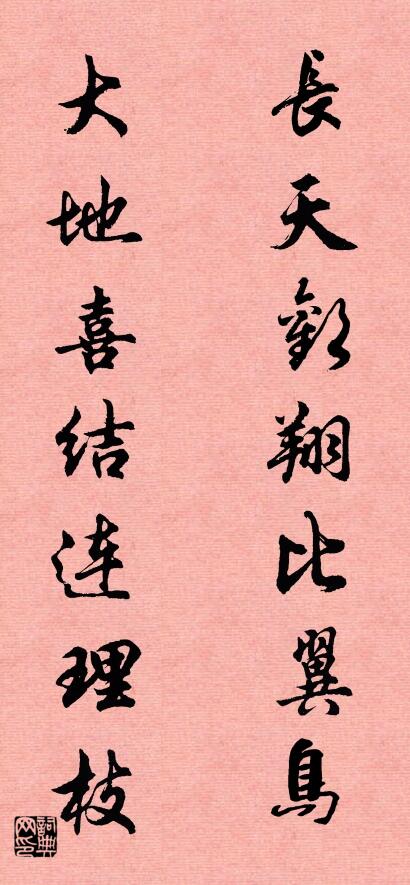 長天歡翔比翼鳥
大地喜结连理枝
詞典网印